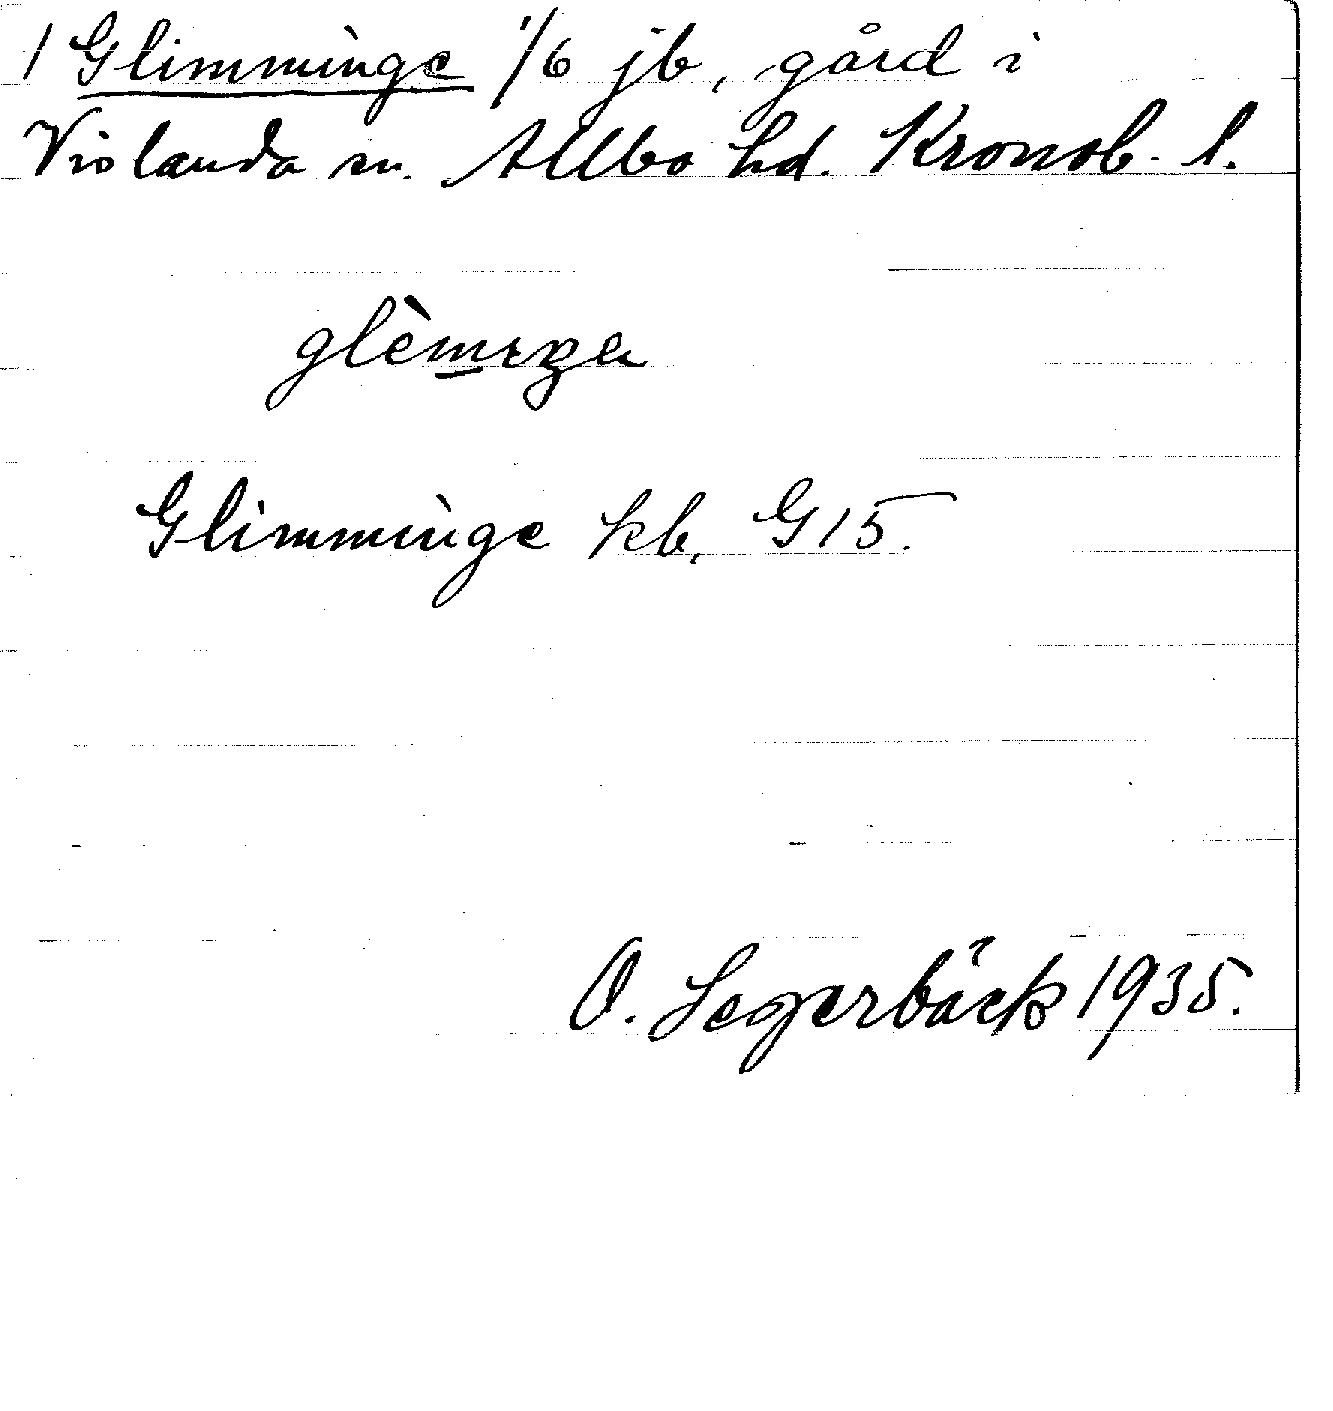 1 Glimminge 1/6 jb, gård i
Vislanda sn. Allbo hd. Kronob. l.
glèmıŋa
Glimminge kb. G15.
O. Segerbäck 1935.